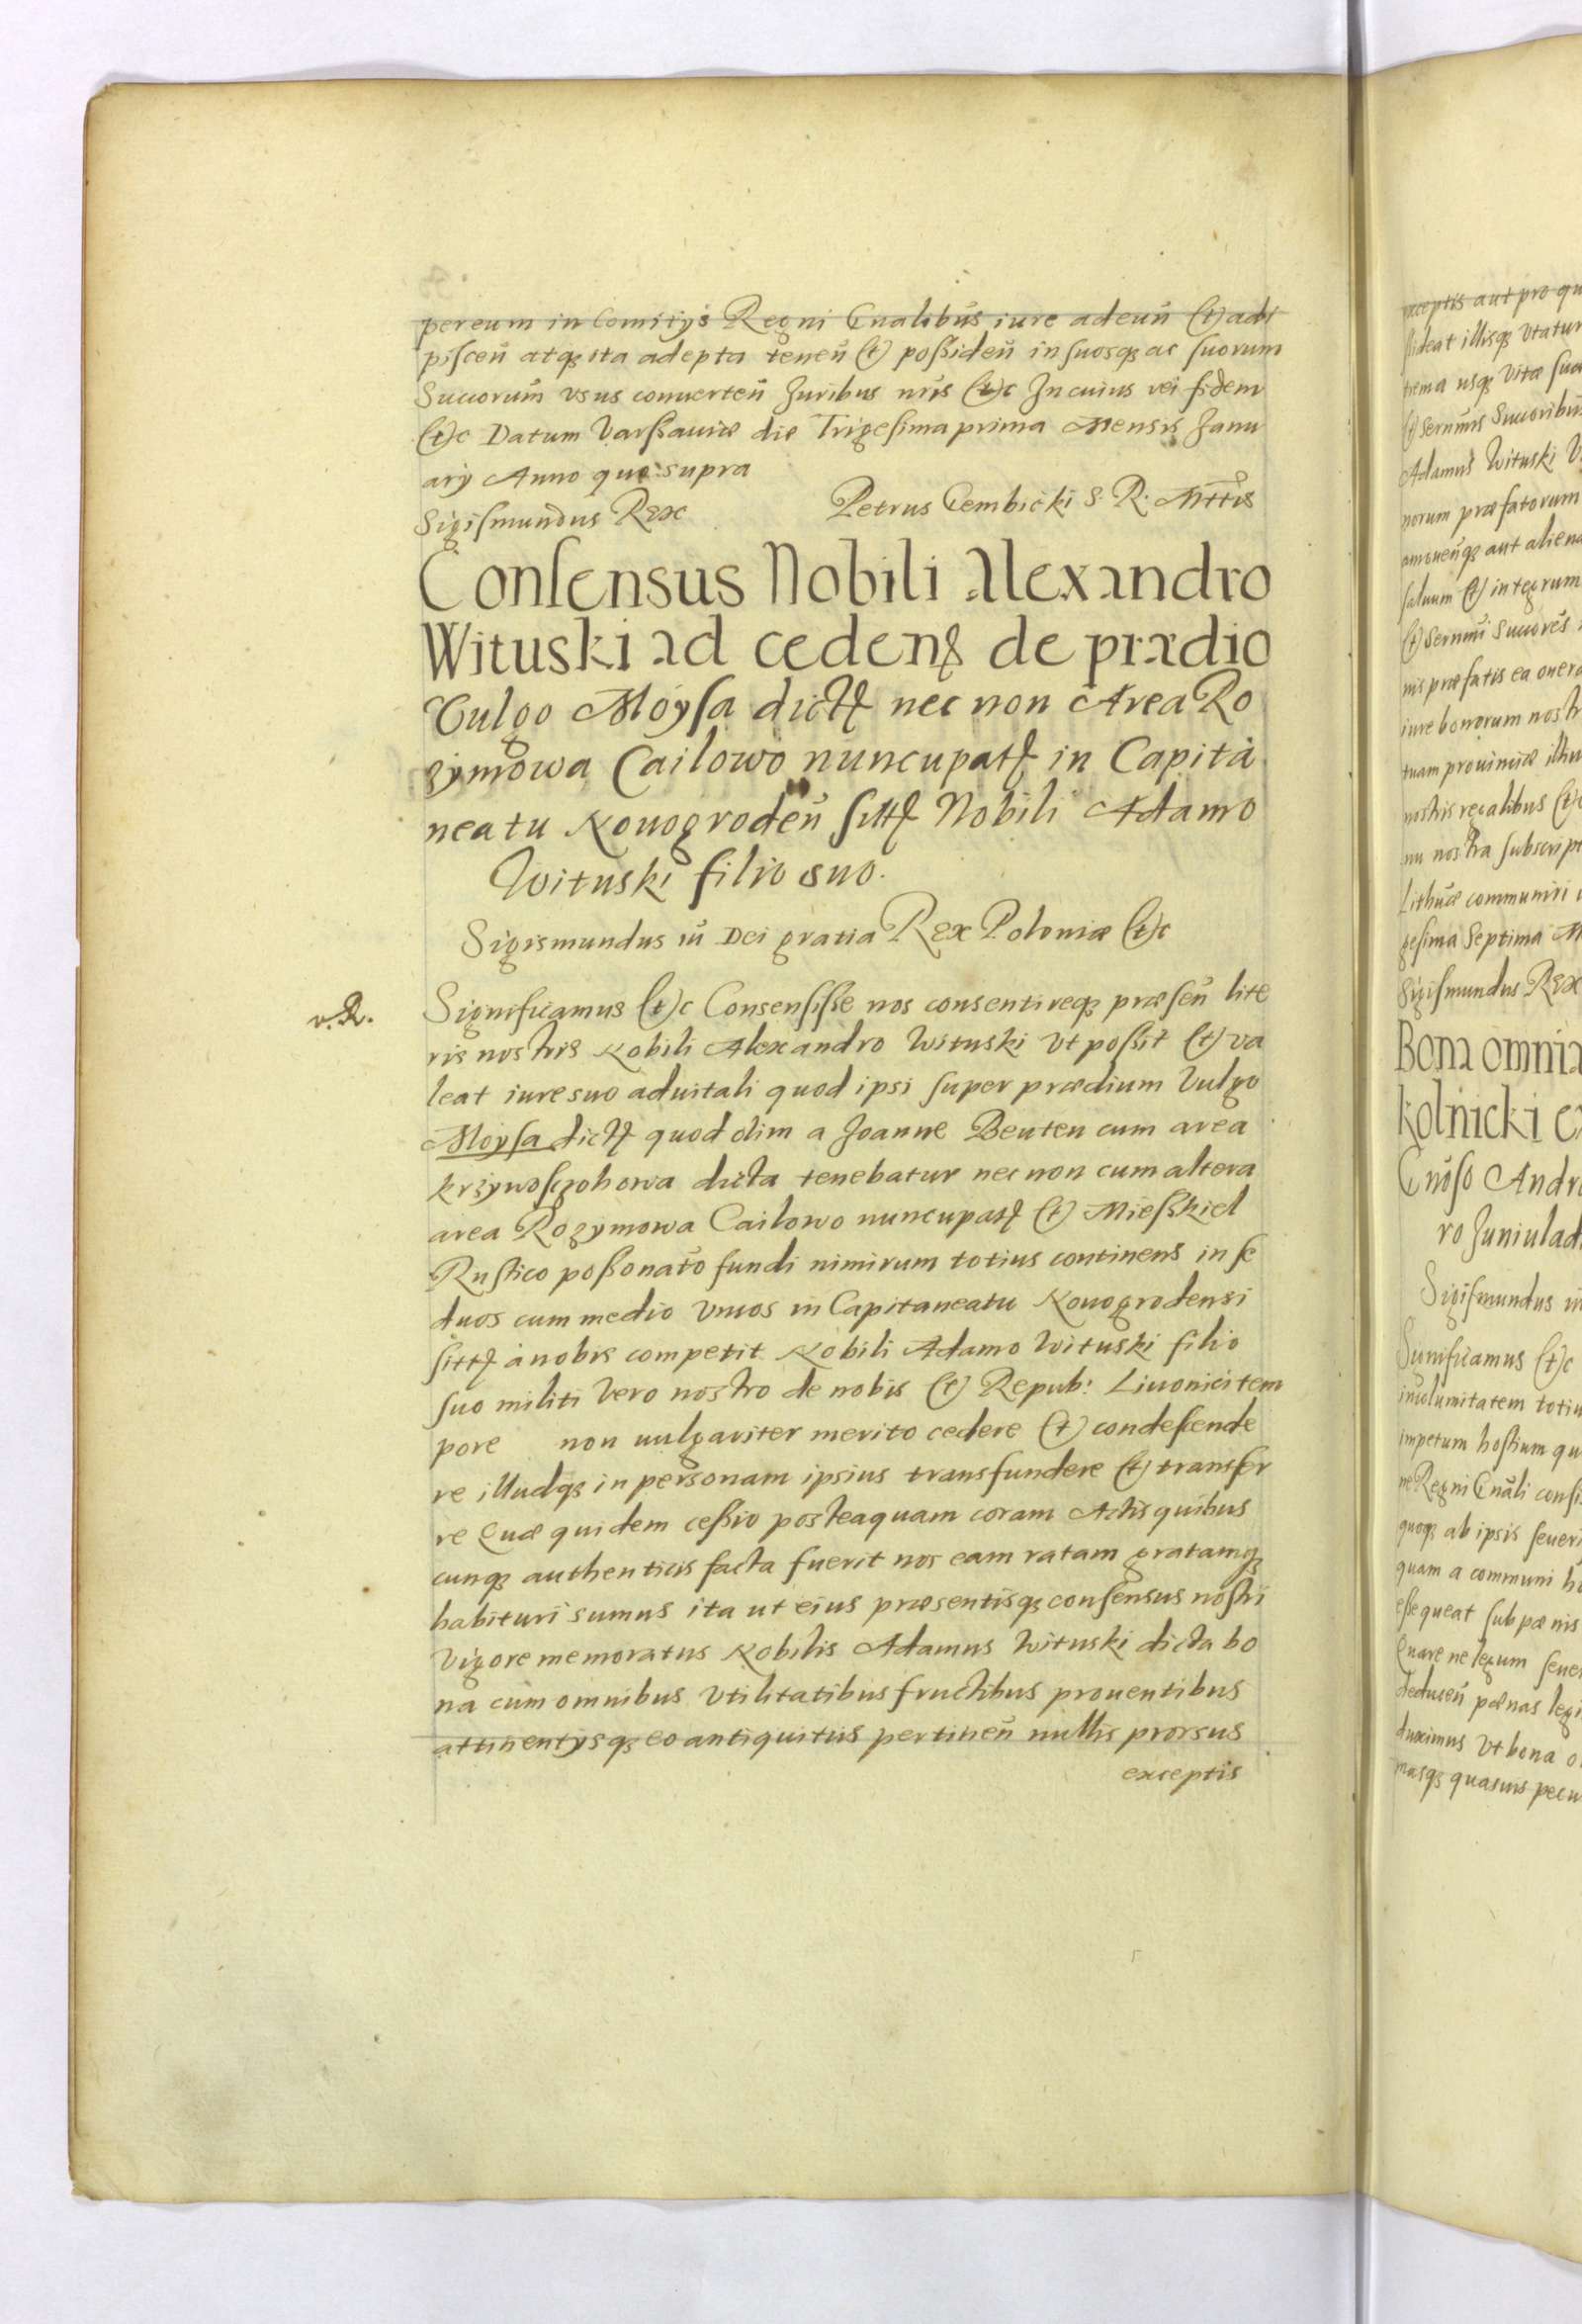 per eum in Comitÿs Regni Gnalibūs iure adeūn (et) adi
piſceñ atqꝫ ita adepta teneñ (et) poßideñ in suosqꝫ ac suorum
Succorum̄ vsus conuerteñ Juribus nrīs (et)c In cuius rei fidem
(et)c Datum Varßauiæ die Trigesima prima Mensis Janu
arÿ Anno quo supra
Sigiſmundus Rex Petrus Gembicki S. R. Mttis
Conſensus Nobili Alexandro
Wituski ad cedenꝫ de prædio
Vulgo Moÿſa dictꝭ nec non Area Ro
zÿmowa Cailowo nuncupatꝭ in Capita
neatu Nouogrodeñ ſittꝭ Nobili Adamo
Wituski filio suo.
Sigismundus iii Dei gratia Rex Poloniæ (et)c
v. R.
Significamus (et)c Consenſiſse nos consentireqꝫ præſeñ lite
ris nostris Nobili Alexandro Wituski vt poßit (et) va
leat iure suo aduitali quod ipsi super prædium vulgo
Moÿsa dictꝭ quod olim a Joanne Beuten cum area
krzÿwoſzohowa dicta tenebatur nec non cum altera
area Rozÿmowa Cailowo nuncupatꝭ (et) Mieſkiel
Ruſtico poßonato fundi nimirum totius continens in ſe
duos cum medio vncos in Capitaneatu Nouogrodensi
ſittꝭ a nobis competit Nobili Adamo Wituski filio
suo militi vero nostro de nobis (et) Repub: Liuonici tem
pore non vulgariter merito cedere (et) condeſcende
re illudqꝫ in personam ipsius transfundere (et) transfer
re Quæ quidem ceßio posteaquam coram Actis quibus
cunqꝫ authenticis facta fuerit nos eam ratam gratamqꝫ
habituri sumus ita ut eius præsentisqꝫ conſensus noſtri
vigore memoratus Nobilis Adamus Wituski dicta bo
na cum omnibus vtilitatibus fructibus prouentibus
attinentÿsqꝫ eo antiquitus pertineñ nullis prorsus
exceptis
exceptis aut pro qu
ſideat illisqꝫ vtatur
trema usqꝫ vitæ sua
(et) Sernmis Succoribus
Adamus Wituski
norum præfatorum
amoueñqꝫ aut aliena
saluum (et) integrum
(et) Sernmi Succores
nis præfatis ea onera
iure bonorum nostr
tuam prouinciæ illiu
nostris regalibus (et)c
nu nostra subscript
Lithuæ communiri
gesima Septima M
Sigiſmundus Rex
Bona omnia
Kolnicki
Gnōso Andr
ro Juniulad
Sigiſmundus iii
Significamus (et)c
incolumitatem totiu
impetum hoſtium qu
ne Regni Gnāli consi
quoqꝫ ab ipsis seueri
quam a communi ho
eſse queat sub pænis
Quare ne legum seue
deduceñ pænas legi
duximus vt bona o
masqꝫ quasuis pecu